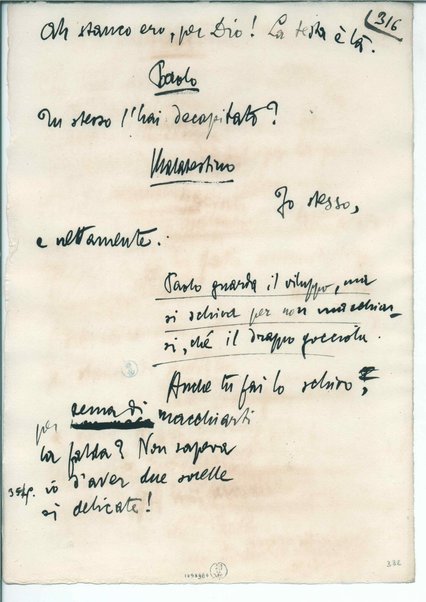 316
Ah stanco ero, per Dio! La testa è là.
Paolo
Tu stesso l'hai decapitato?
Malatestino
Io stesso,
e nettamente.
Paolo guarda il viluppo, ma
si schiva per non macchiar-
si, ché il drappo gocciola.
Anche tu fai lo schivo,
per tema di macchiarti
la falda? Non sapeva
io d'aver due sorelle
sì delicate!
332